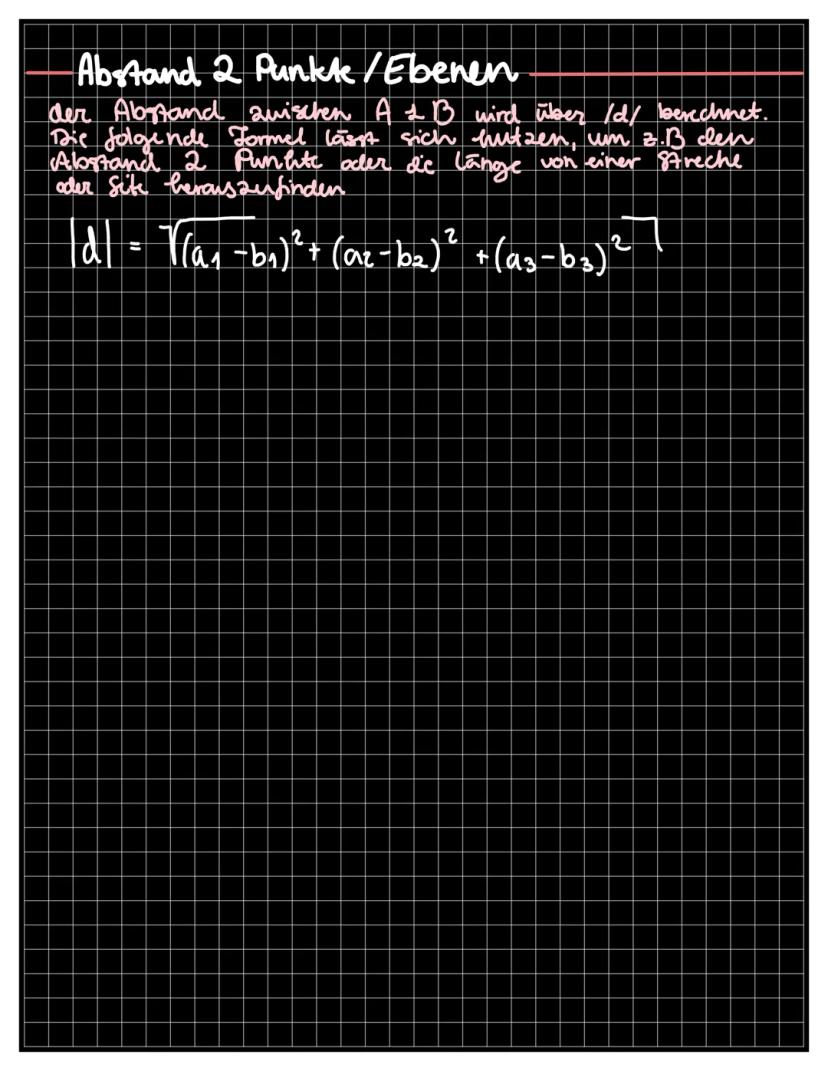 Abstand 2 Punkte / Ebenen
der Abstand zwischen A & B wird über |d| berechnet.
Die folgende Formel lässt sich nutzen, um z.B den
Abstand 2 Punkte oder die Länge von einer Strecke
oder Seite herauszufinden
|d| = √((a₁ - b₁)² + (a₂ - b₂)² + (a₃ - b₃)²)